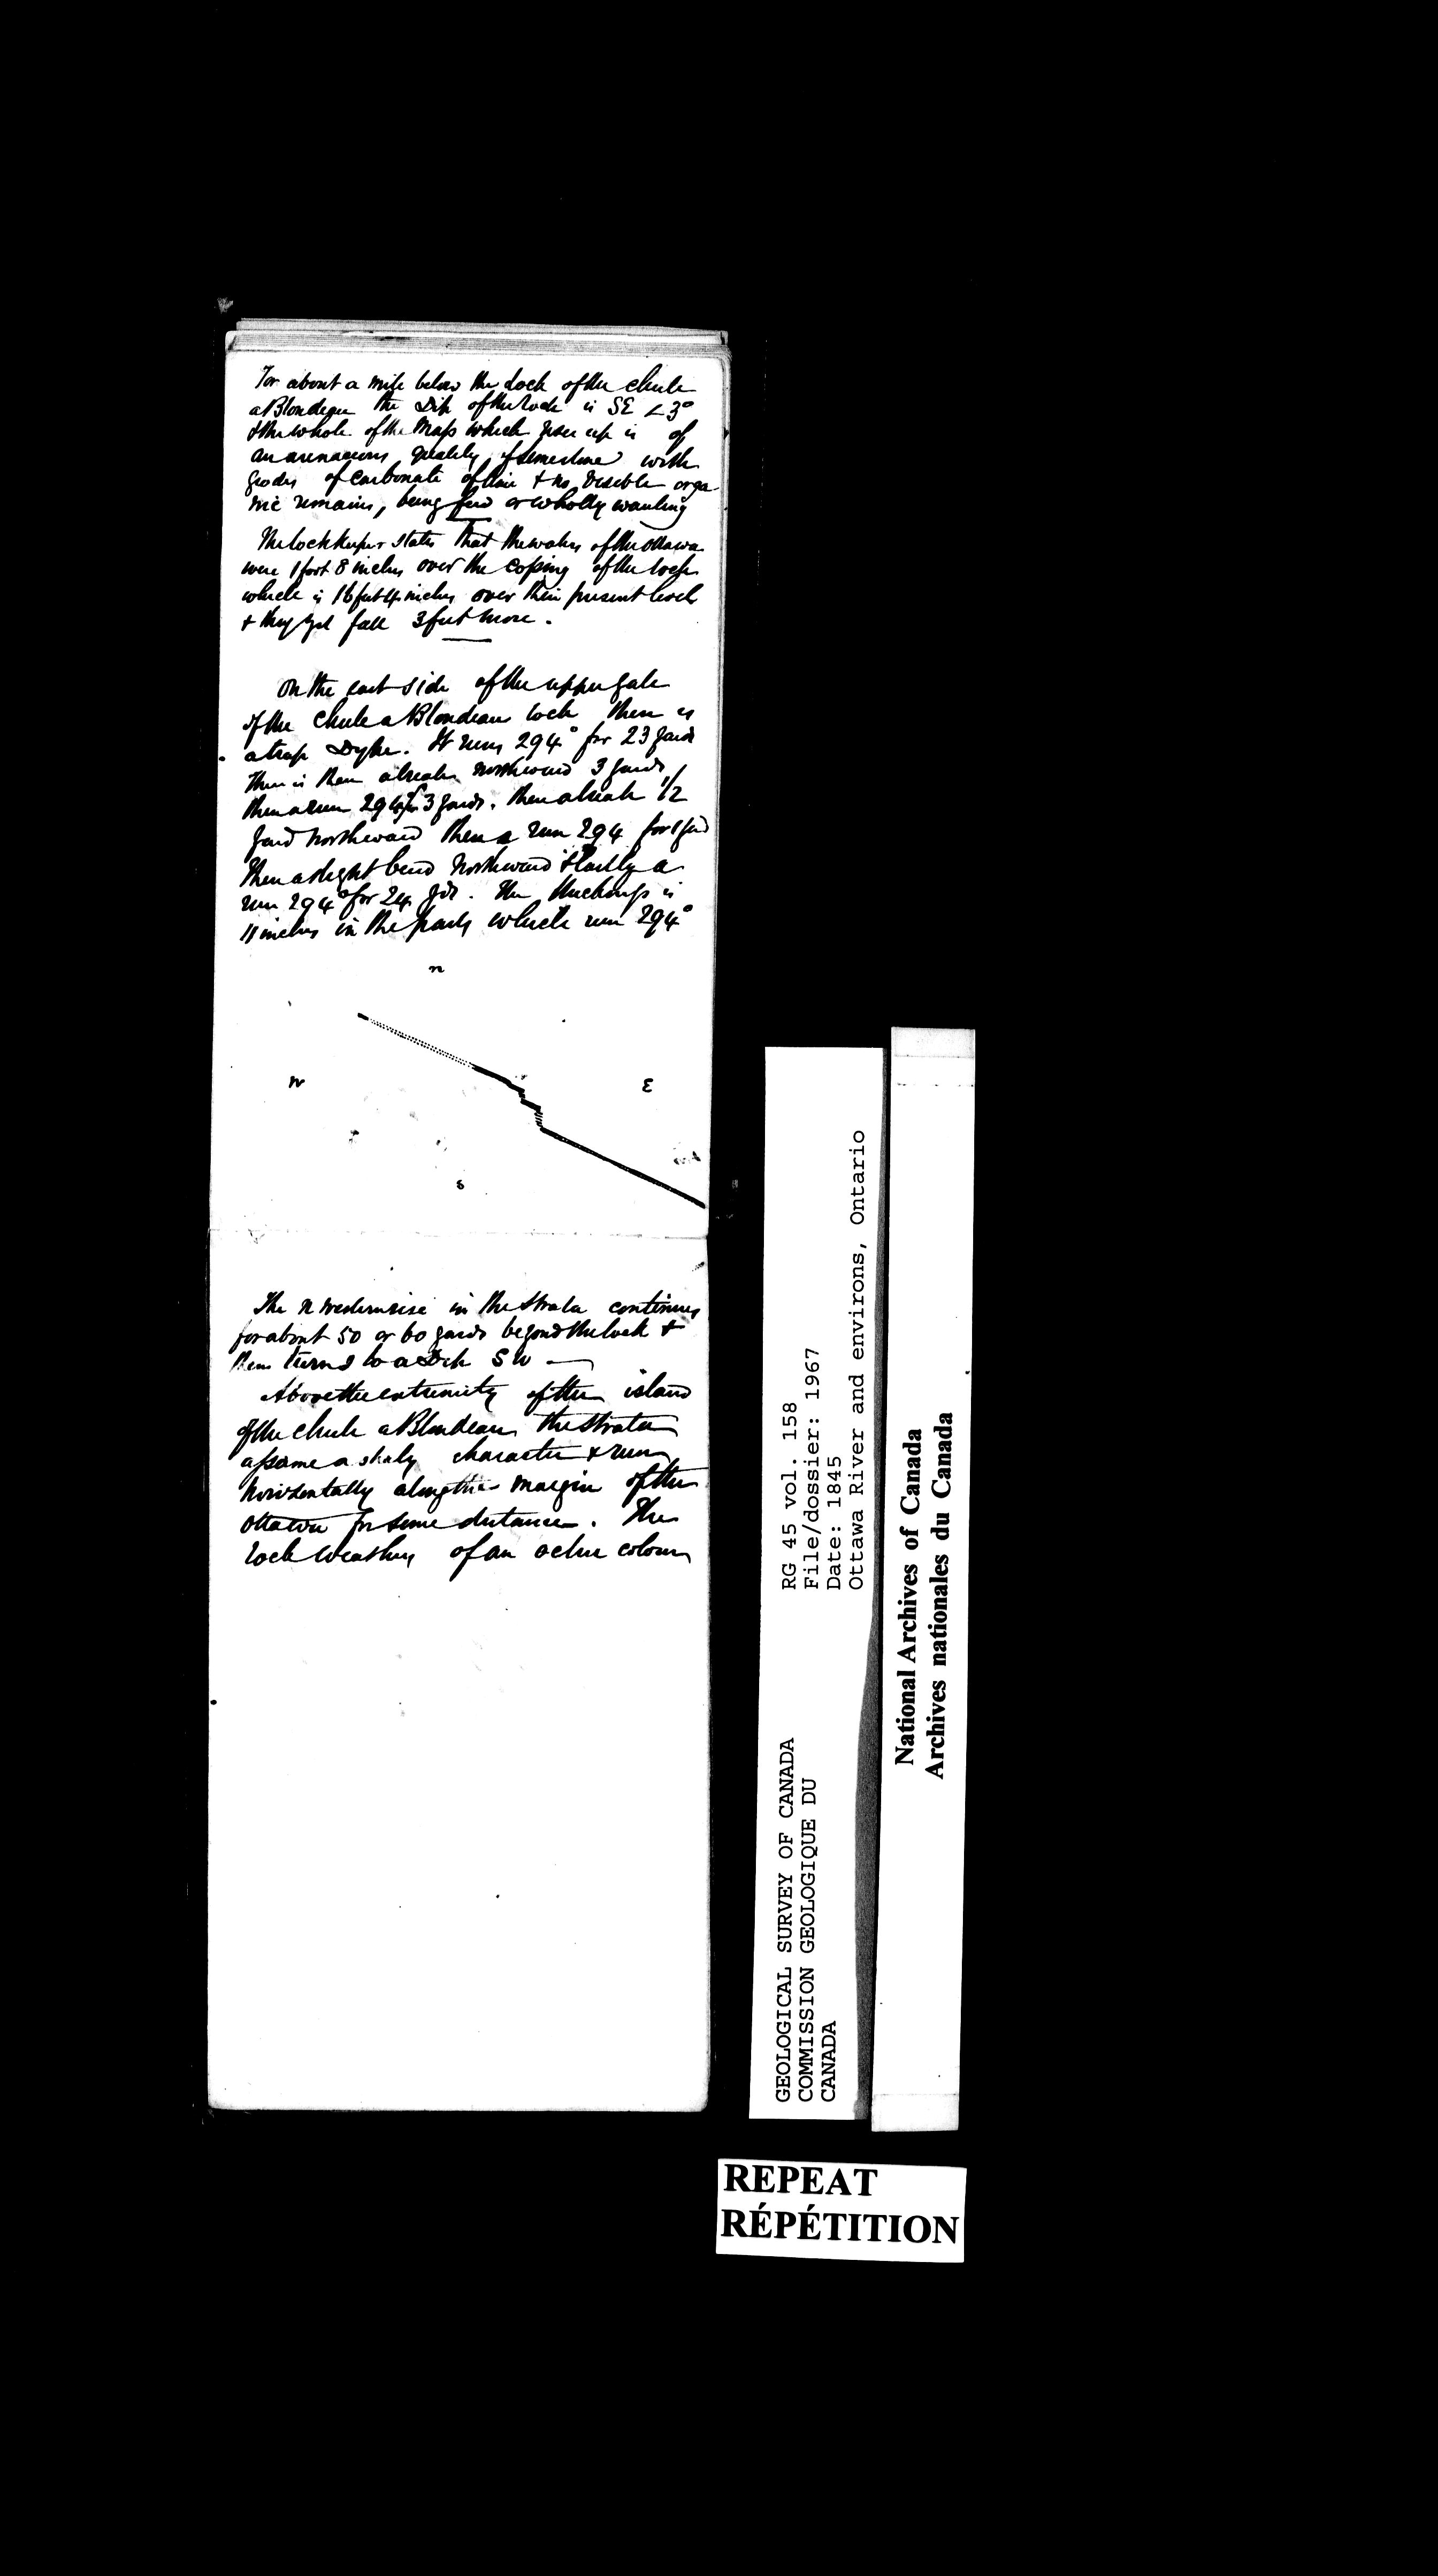 For about a mile below the lock of the chute
a Blondeau the Dip of the rock is SE < 3°
& the whole of the mass which goes up is of
an arenaceous quality of limestone with
geodes of carbonate of lime & no visible orga
nic remains, being few or wholly wanting
The lock keeper states that the waters of the Ottawa
were 1 foot 8 inches over the coping of the lock
which is 16 feet 4 inches over their present level
& they yet fall 3 feet more.
On the east side of the upper gate
of the chute a Blondeau lock there is
a trap Dyke. It runs 294° for 23 yards
There is then a break northward 3 yards
then a run 294° for 3 yards. then a break 1/2
yard northward then a run 294 for 1 yard
Then a slight bend northward & lastly a
run 294° for 24 yds. The thickness is
11 inches in the parts which run 294°
N
W
E
S
The N western rise in the strata continues
for about 50 or 60 yards beyond the lock &
then turns to a Dip SW
Above the extremity of the island
of the chute a Blondeau the strata
assume a shaly character & run
horizontally along the margin of the
Ottawa for some distance. The
rock weathers of an ochre colour
GEOLOGICAL SURVEY OF CANADA
COMMISSION GEOLOGIQUE DU
CANADA
RG 45 vol. 158
File/dossier: 1967
Date: 1845
Ottawa River and environs, Ontario
National Archives of Canada
Archives nationales du Canada
REPEAT
RÉPÉTITION